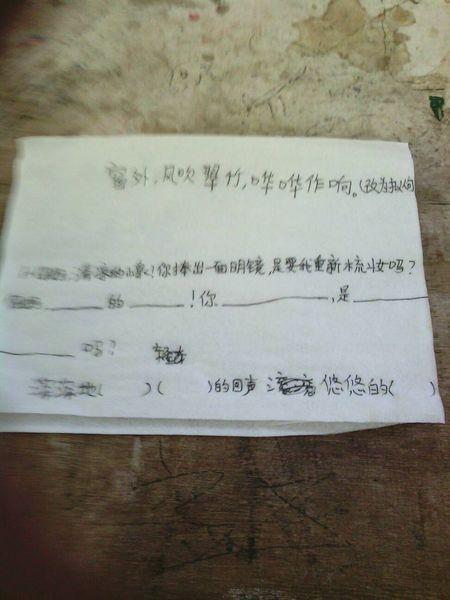 窗外，风吹翠竹，哗哗作响。(改为拟人句
的小溪！你捧出一面明镜，是要我重新梳妆吗？
的______！你________，是________
______吗？
地( )( )的回声 悠悠的( )